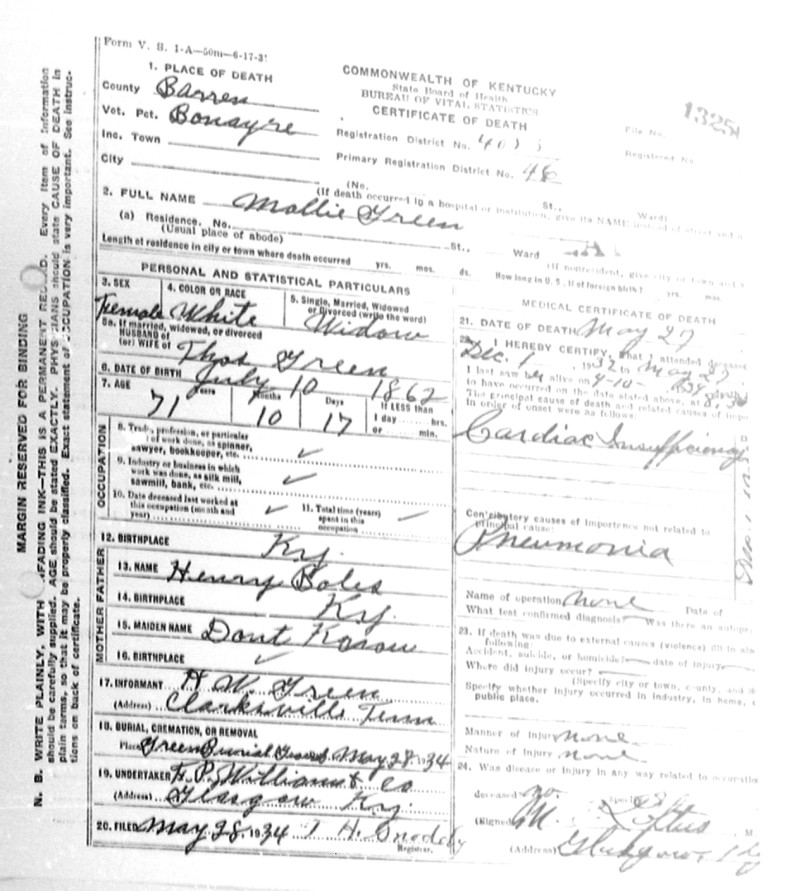 N. B. WRITE PLAINLY, WITH FADING INK—THIS IS A PERMANENT RECORD. Every item of information
should be carefully supplied. AGE should be stated EXACTLY. PHYSICIANS should state CAUSE OF DEATH in
plain terms, so that it may be properly classified. Exact statement of OCCUPATION is very important. See instruc-
tions on back of certificate.
MARGIN RESERVED FOR BINDING
Form V. S. 1-A—50m—6-17-3
1. PLACE OF DEATH
County Barren
Vot. Pct. Bonayre
Inc. Town
City
COMMONWEALTH OF KENTUCKY
State Board of Health
BUREAU OF VITAL STATISTICS
CERTIFICATE OF DEATH
File No. 1325
Registration District No.
Registered No.
Primary Registration District No.
(No. St., Ward)
(If death occurred in a hospital or institution, give its NAME instead of street and
2. FULL NAME Mollie Green
(a) Residence. No. St., Ward
(Usual place of abode) (If nonresident, give city or town and
Length of residence in city or town where death occurred yrs. mos. ds. How long in U. S., if of foreign birth? yrs. mos.
PERSONAL AND STATISTICAL PARTICULARS
3. SEX Female
4. COLOR OR RACE White
5. Single, Married, Widowed
or Divorced (write the word)
Widow
5a. If married, widowed, or divorced
HUSBAND of
(or) WIFE of Thos Green
6. DATE OF BIRTH July 10 1862
7. AGE 71 Years 10 Months 17 Days If LESS than
1 day hrs.
or min.
OCCUPATION
8. Trade, profession, or particular
of work done, as spinner,
sawyer, bookkeeper, etc. ✓
9. Industry or business in which
work was done, as silk mill,
sawmill, bank, etc. ✓
10. Date deceased last worked at
this occupation (month and
year) ✓
11. Total time (years)
spent in this
occupation
12. BIRTHPLACE Ky.
FATHER
13. NAME Henry Boles
14. BIRTHPLACE Ky.
MOTHER
15. MAIDEN NAME Dont Know
16. BIRTHPLACE ✓
17. INFORMANT H. W. Green
(Address) Clarksville Tenn
18. BURIAL, CREMATION, OR REMOVAL
Place Green Burial Ground May 28 1934
19. UNDERTAKER F. P. Williams & Co
(Address) Glasgow Ky.
20. FILED May 28 1934 T H. Snoddy
Registrar.
MEDICAL CERTIFICATE OF DEATH
21. DATE OF DEATH May 27
22. I HEREBY CERTIFY, that I attended deceased
Dec. 1, 1932 to May 27
I last saw her alive on 4-10-
to have occurred on the date stated above, at
The principal cause of death and related causes of
in order of onset were as follows:
Cardiac Insufficiency
Contributory causes of importance not related to
principal cause:
Pneumonia
Name of operation none Date of
What test confirmed diagnosis Was there an autop
23. If death was due to external causes (violence) fill in
following:
Accident, suicide, or homicide? date of injury
Where did injury occur?
(Specify city or town, county, and
Specify whether injury occurred in industry, in home,
public place.
Manner of injury none
Nature of injury none
24. Was disease or injury in any way related to occupation
deceased no
(Signed) M. Loftus M
(Address) Glasgow,